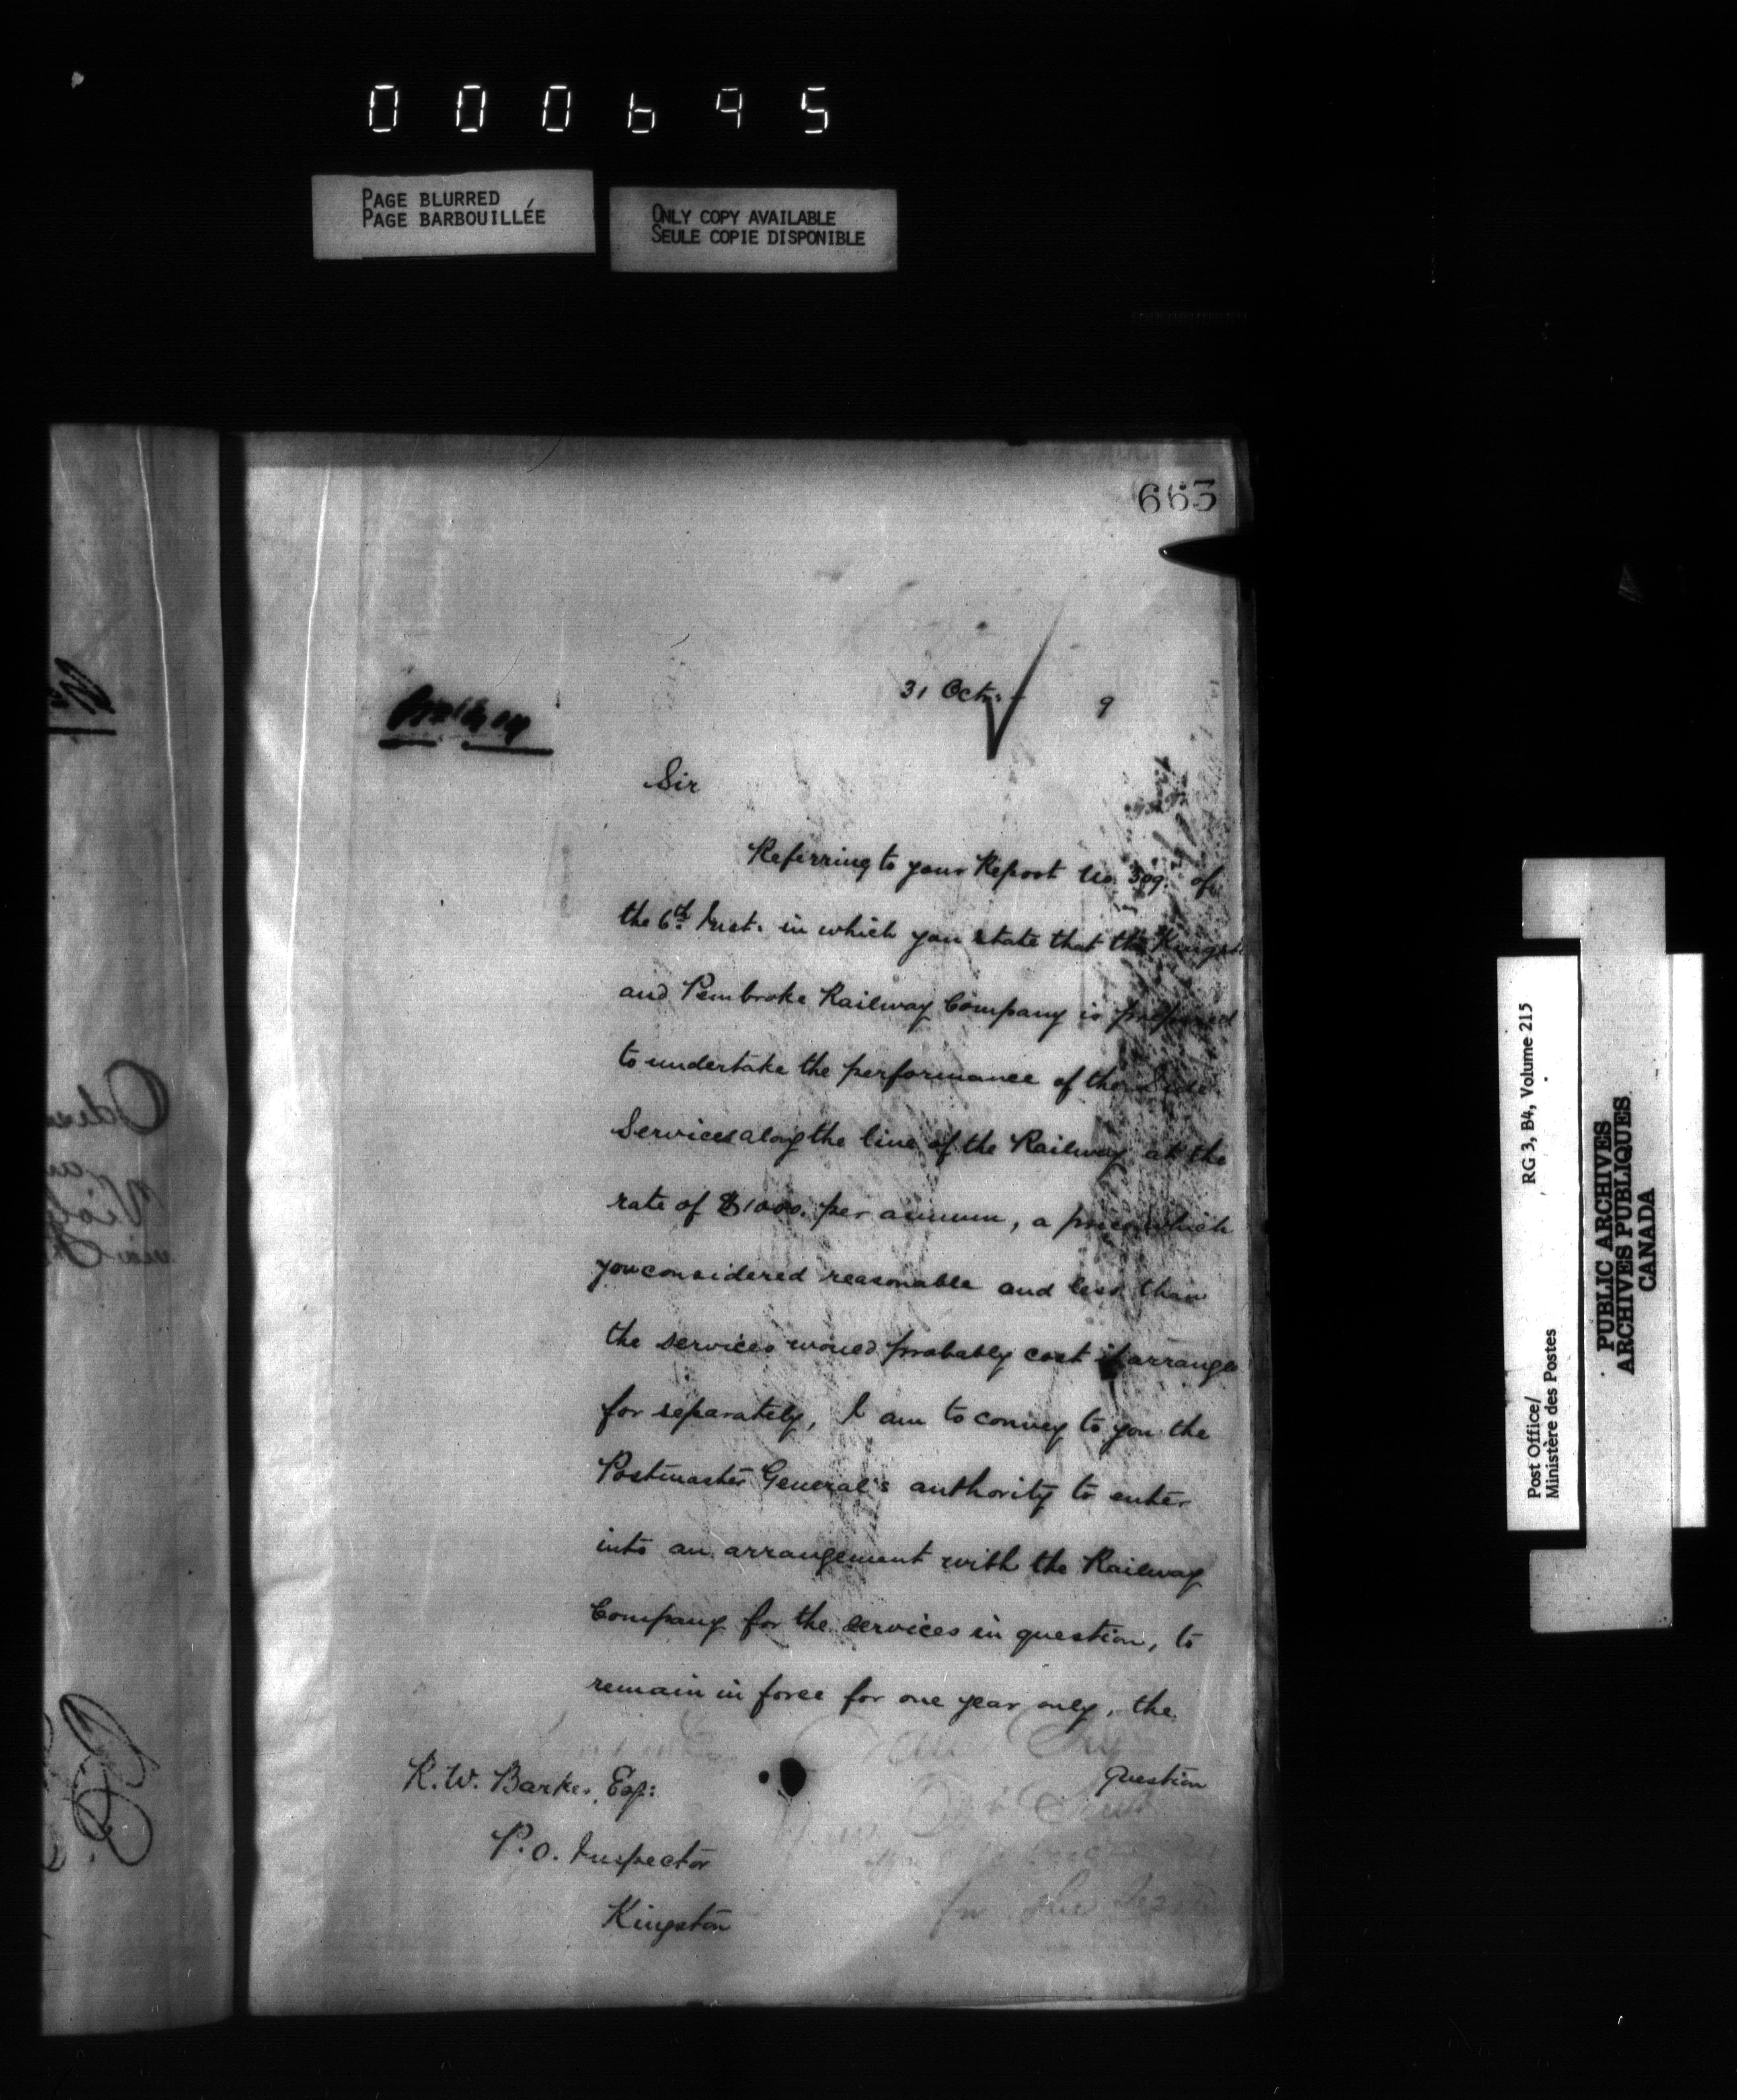 000695
PAGE BLURRED
PAGE BARBOUILLÉE
ONLY COPY AVAILABLE
SEULE COPIE DISPONIBLE
663
31 Oct. 9
Sir
Referring to your Report No. 309 of
the 6th Inst. in which you state that the Kingst
and Pembroke Railway Company is prepared
to undertake the performance of the Side
Services along the line of the Railway at the
rate of $1000. per annum, a price which
you considered reasonable and less than
the services would probably cost if arranged
for separately, I am to convey to you the
Postmaster General's authority to enter
into an arrangement with the Railway
Company for the services in question, to
remain in force for one year only, the
Question
R. W. Barker, Esq:
P.O. Inspector
Kingston
Post Office/
Ministère des Postes
RG 3, B4, Volume 215
PUBLIC ARCHIVES
ARCHIVES PUBLIQUES
CANADA